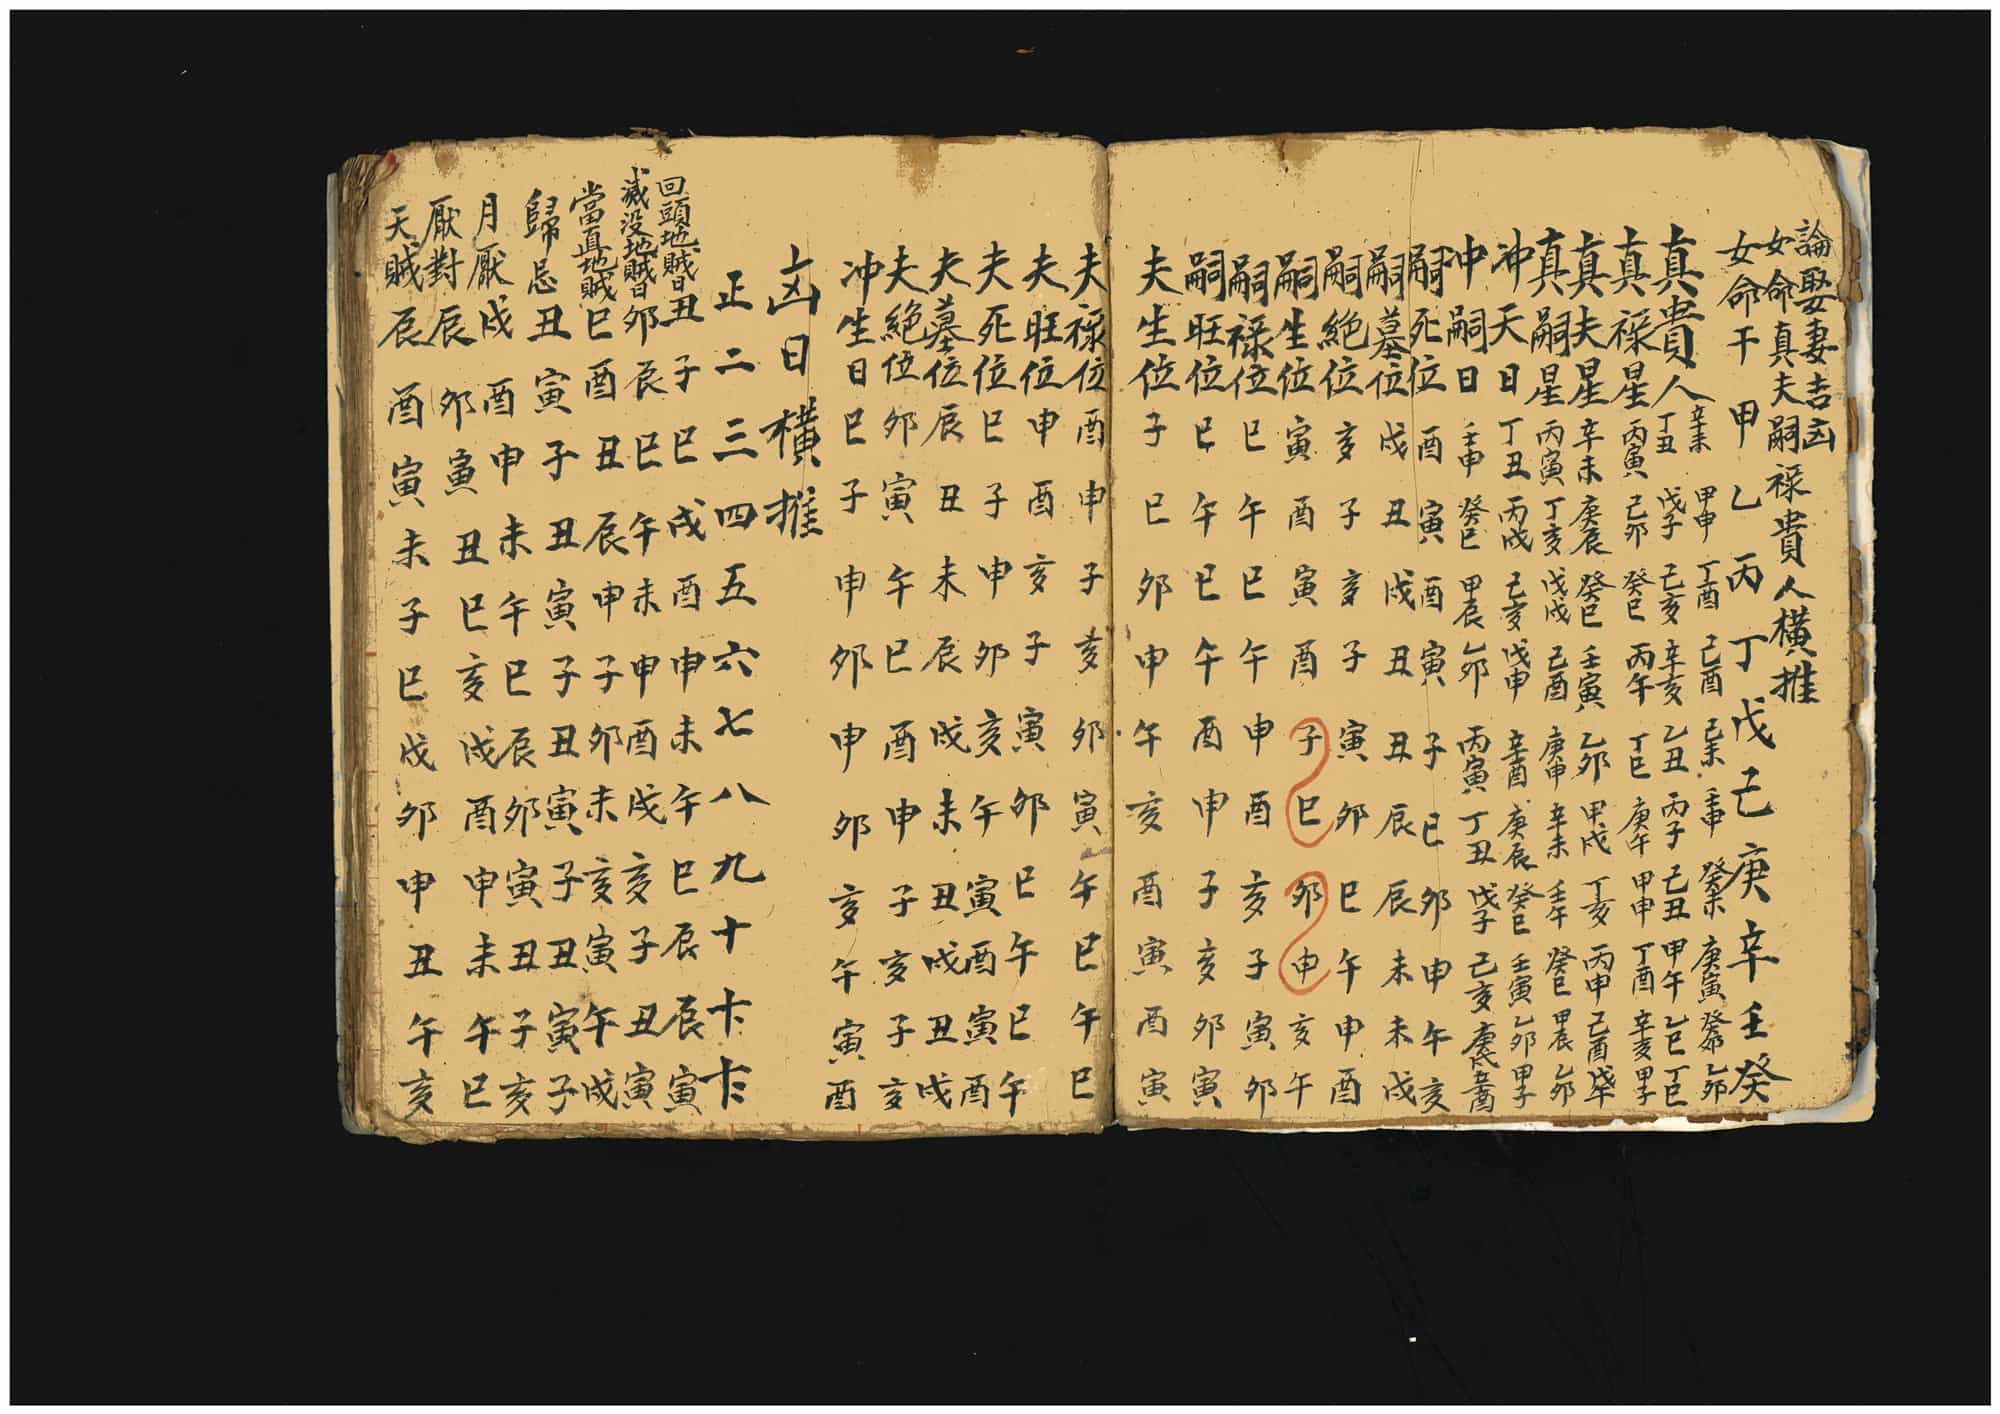 論娶妻吉凶
女命真夫嗣祿貴人橫推
女命干甲乙丙丁戊己庚辛壬癸
辛未甲申丁酉己酉己未壬申癸未庚寅癸卯乙卯
真貴人丁丑戊子己亥辛亥乙丑丙子己丑甲午乙巳丁巳
真祿星丙寅己卯癸巳丙午丁巳庚午甲申丁酉辛亥甲子
真夫星辛未庚辰癸巳壬寅乙卯甲戌丁亥丙申己酉戊午
真嗣星丙寅丁亥戊戌己酉庚申辛未壬午癸巳甲辰乙卯
冲天日丁丑丙戌己亥戊申辛酉庚辰癸巳壬寅乙卯甲子
冲嗣日壬申癸巳甲辰乙卯丙寅丁丑戊子己亥庚戌辛酉
嗣死位酉寅酉寅子巳卯申午亥
嗣墓位戌丑戌丑丑辰辰未未戌
嗣絕位亥子亥子寅卯巳午申酉
嗣生位寅酉寅酉子巳卯申亥午
嗣祿位巳午巳午申酉亥子寅卯
嗣旺位巳午巳午酉申子亥卯寅
夫生位子巳卯申午亥酉寅酉寅
夫祿位酉申子亥卯寅午巳午巳
夫旺位申酉亥子寅卯巳午巳午
夫死位巳子申卯亥午寅酉寅酉
夫墓位辰丑未辰戌未丑戌丑戌
夫絕位卯寅午巳酉申子亥子亥
冲生日巳子申卯申卯亥午寅酉
凶日橫推
正二三四五六七八九十十一十二
回頭地賊日丑子巳戌酉申未午巳辰辰寅
滅没地賊日卯辰巳午未申酉戌亥子丑寅
當直地賊巳酉丑辰申子卯未亥寅午戌
歸忌丑寅子丑寅子丑寅子丑寅子
月厭戌酉申未午巳辰卯寅丑子亥
厭對辰卯寅丑巳亥戌酉申未午巳
天賊辰酉寅未子巳戌卯申丑午亥